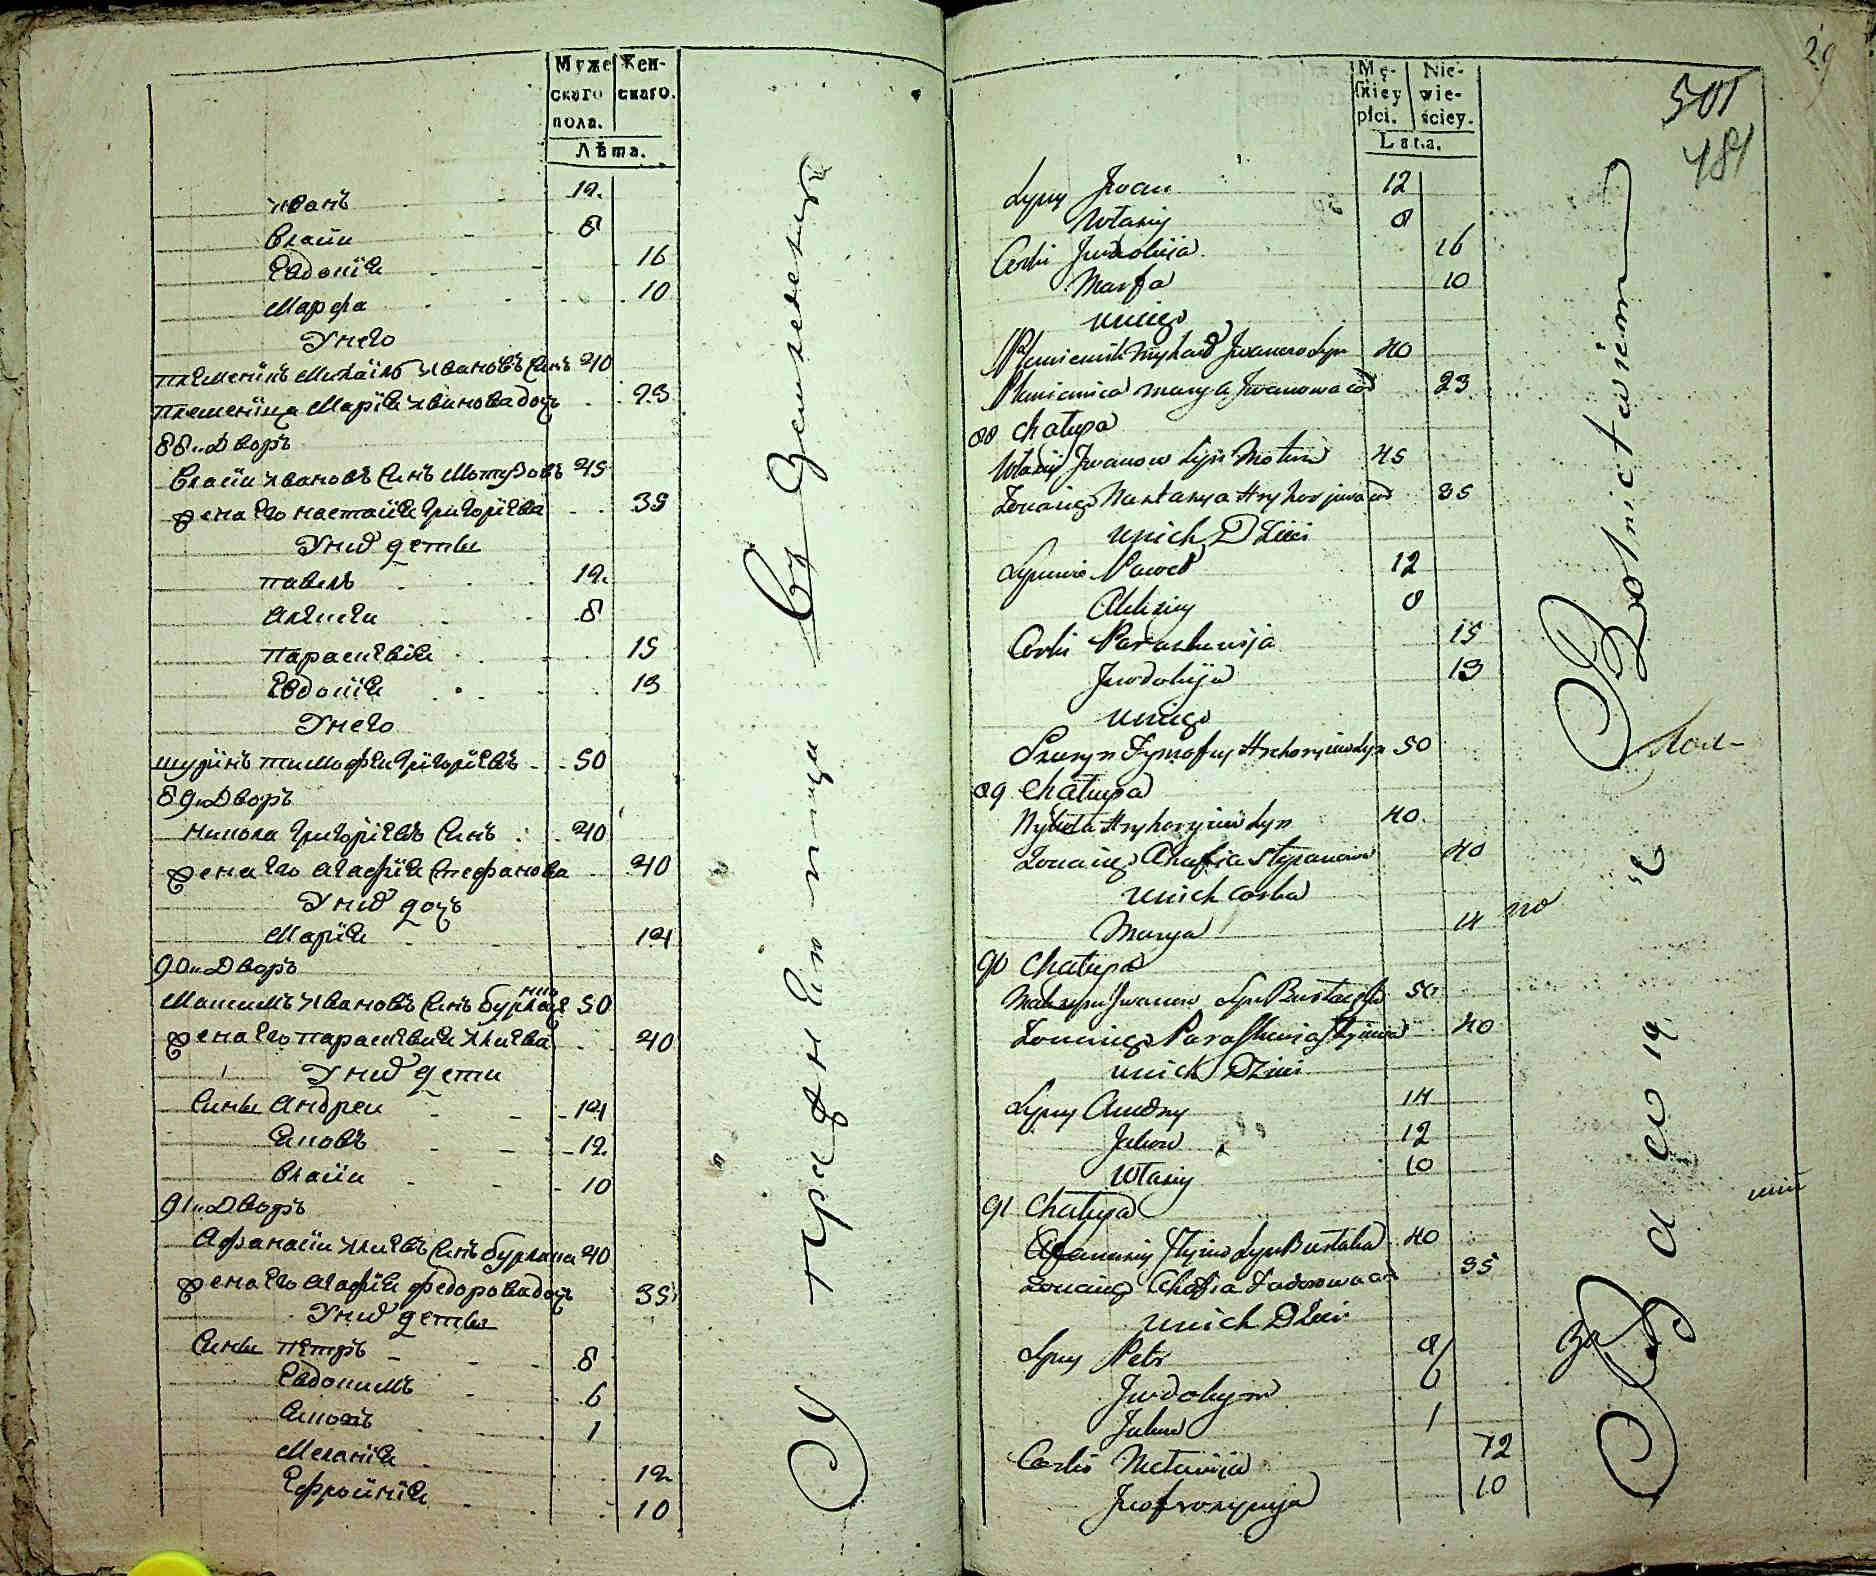 Муже Жен-
скаго скаго.
пола.
Лѣта.
Иванъ 12.
Власiи 8
Евдокiя 16
Марфа 10
У него
племенiкъ Михаiлъ Ивановъ Синъ 40
племенiца Марiя Иванова доч 23
88и Дворъ
Власiи Ивановъ Синъ Мотузовъ 45
жена Его настасiя Григорiева 35
У них дети
павелъ 12.
Алексеи 8
Параскевiя 15
Евдокiя 13
У него
шурiнъ тимофеи Григорiевъ 50
89и Дворъ
никола Григорiевъ Синъ 40
жена Его Агафiя Стефанова 40
У них доч
Марiя 14
90и Дворъ
Максимъ Ивановъ Синъ бурлаченко 50
жена Его параскевия Илiева 40
У них дети
Сини Андреи 14
Яковъ 12.
Власiи 10
91и Дворъ
Афанасiи Илiевъ Синъ бурлака 40
жена Его Агафiя федорова доч 35
У них дети
Сини петръ 8
Евдокимъ 6
Яковъ 1
Меланiя 12
Ефросiнiя 10
29
501
481
Mę- Nie-
skiey wie-
płci. ściey.
Lata.
Syny Jwan 12
Własiy 8
Corki Jwdokija 16
Marfa 10
u niego
Plemiennik Myhaił Jwanow Syn 40
Plemienica Marya Jwanowa cor 23
88 Chałupa
Własiy Jwanow Syn Motuz 45
Żona iego Nastasya Hryhorjewa cor 35
u nich Dzieci
Synowie Paweł 12
Alexiey 8
Corki Paraskewija 15
Jwdokija 13
u niego
Szuryn Tymofiey Hrehoryiew Syn 50
89 Chałupa
Nykoła Hryhoryiew Syn 40
Żona iego Ahafia Stepanowa 40
u nich Corka
Marya 14
90 Chałupa
Maksym Jwanow Syn 50
Żona iego Paraskewia 40
u nich Dzieci
Syny Andrey 14
Jakow 12
Własiy 10
91 Chałupa
Afanasiy Syn Burłaka 40
Żona iego Ahafia Fedorowa cor 35
u nich Dzieci
Syny Petr 8
Jwdokym 6
Jakow 1
Corki Mełanija 12
Jwfrosynija 10